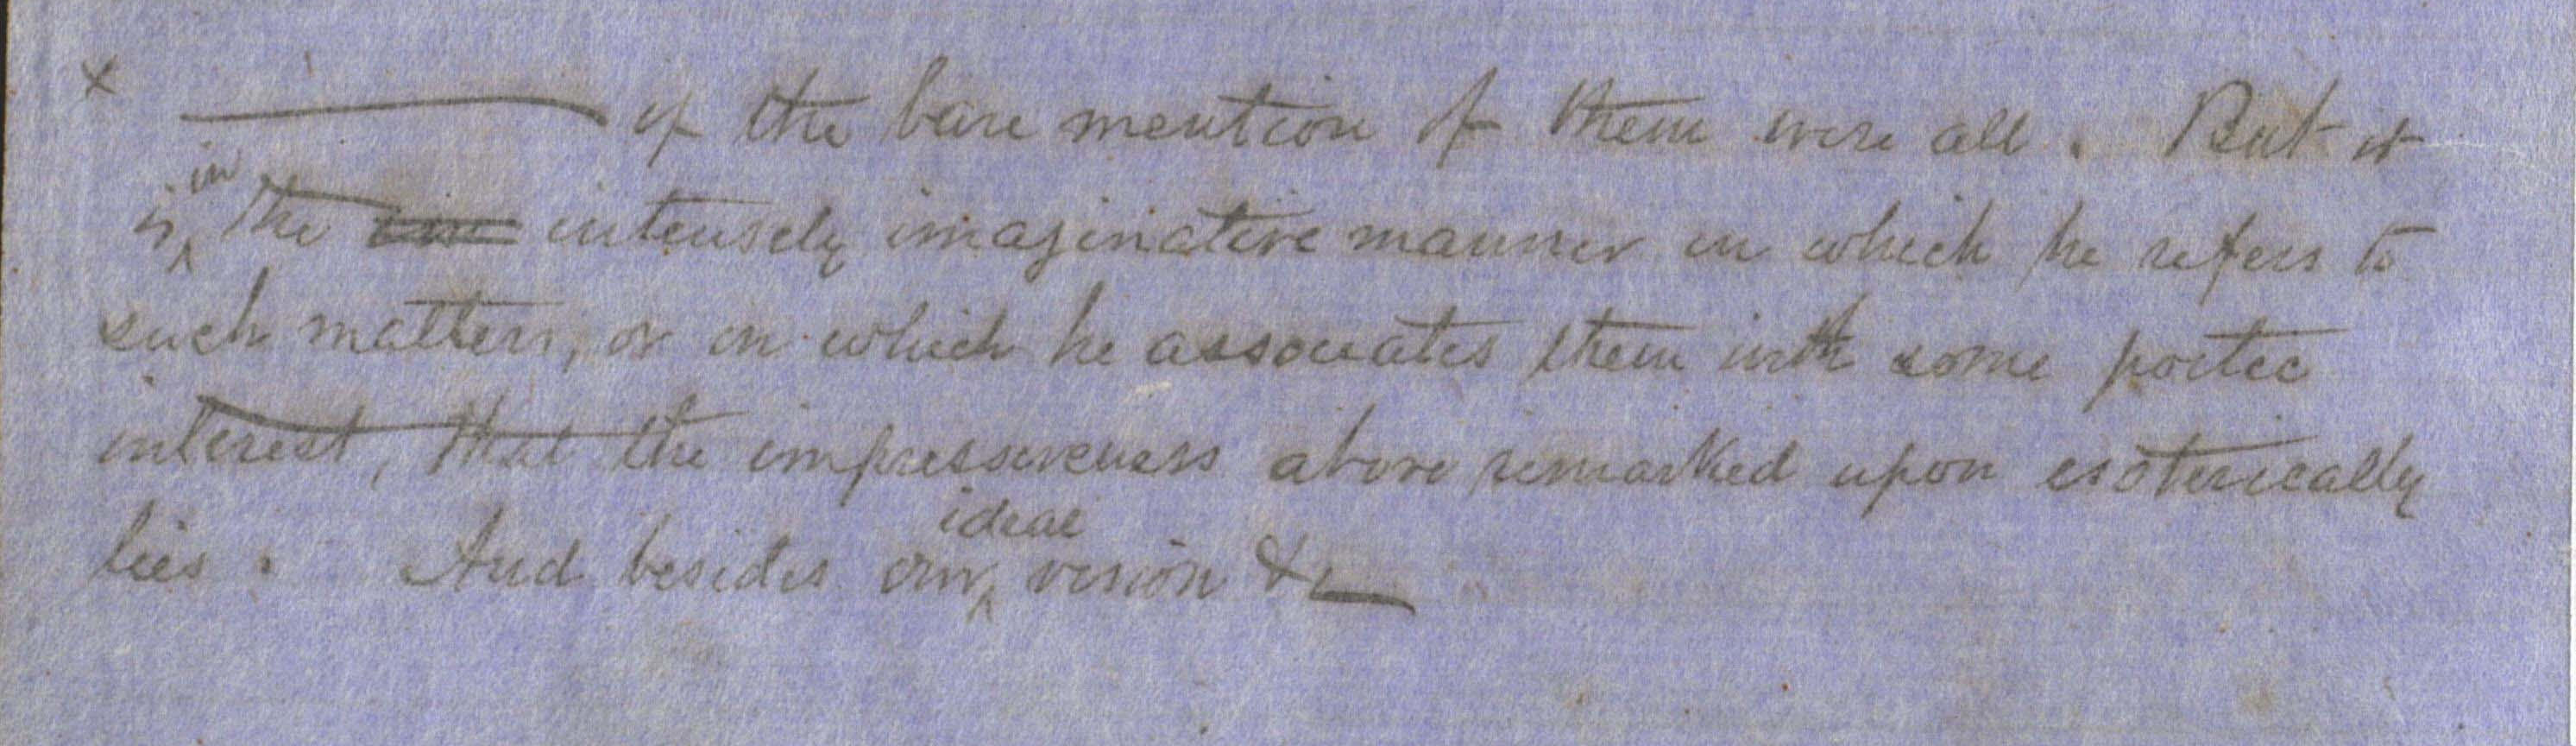 x ——— if the bare mention of them were all. But it
is in the intensely imaginative manner in which he refers to
such matters, or in which he associates them with some poetic
interest, that the impressiveness above remarked upon esoterically
lies. And besides our ideal vision &c